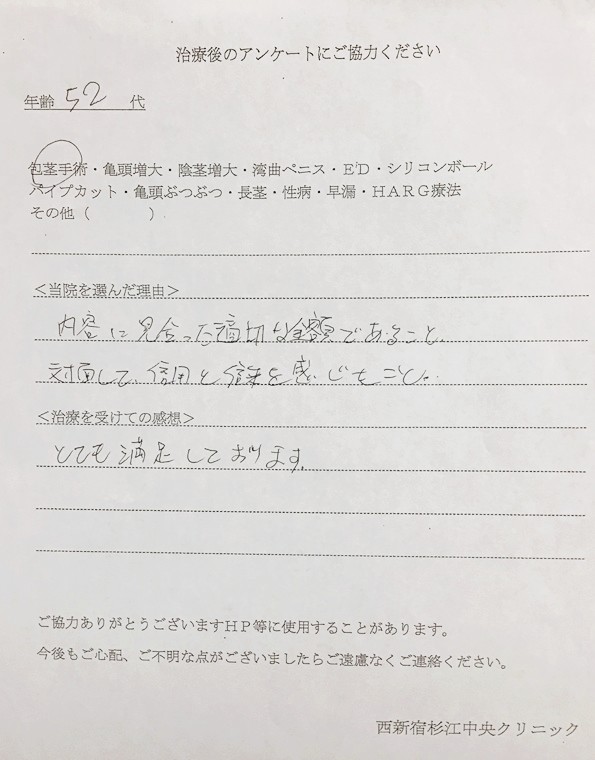 治療後のアンケートにご協力ください
年齢 52 代
包茎手術・亀頭増大・陰茎増大・湾曲ペニス・ED・シリコンボール
パイプカット・亀頭ぶつぶつ・長茎・性病・早漏・HARG療法
その他（　　　）
＜当院を選んだ理由＞
内容に見合った適切な金額であること。
対面して、信用と信頼を感じたこと。
＜治療を受けての感想＞
とても満足しております。
ご協力ありがとうございますHP等に使用することがあります。
今後もご心配、ご不明な点がございましたらご遠慮なくご連絡ください。
西新宿杉江中央クリニック